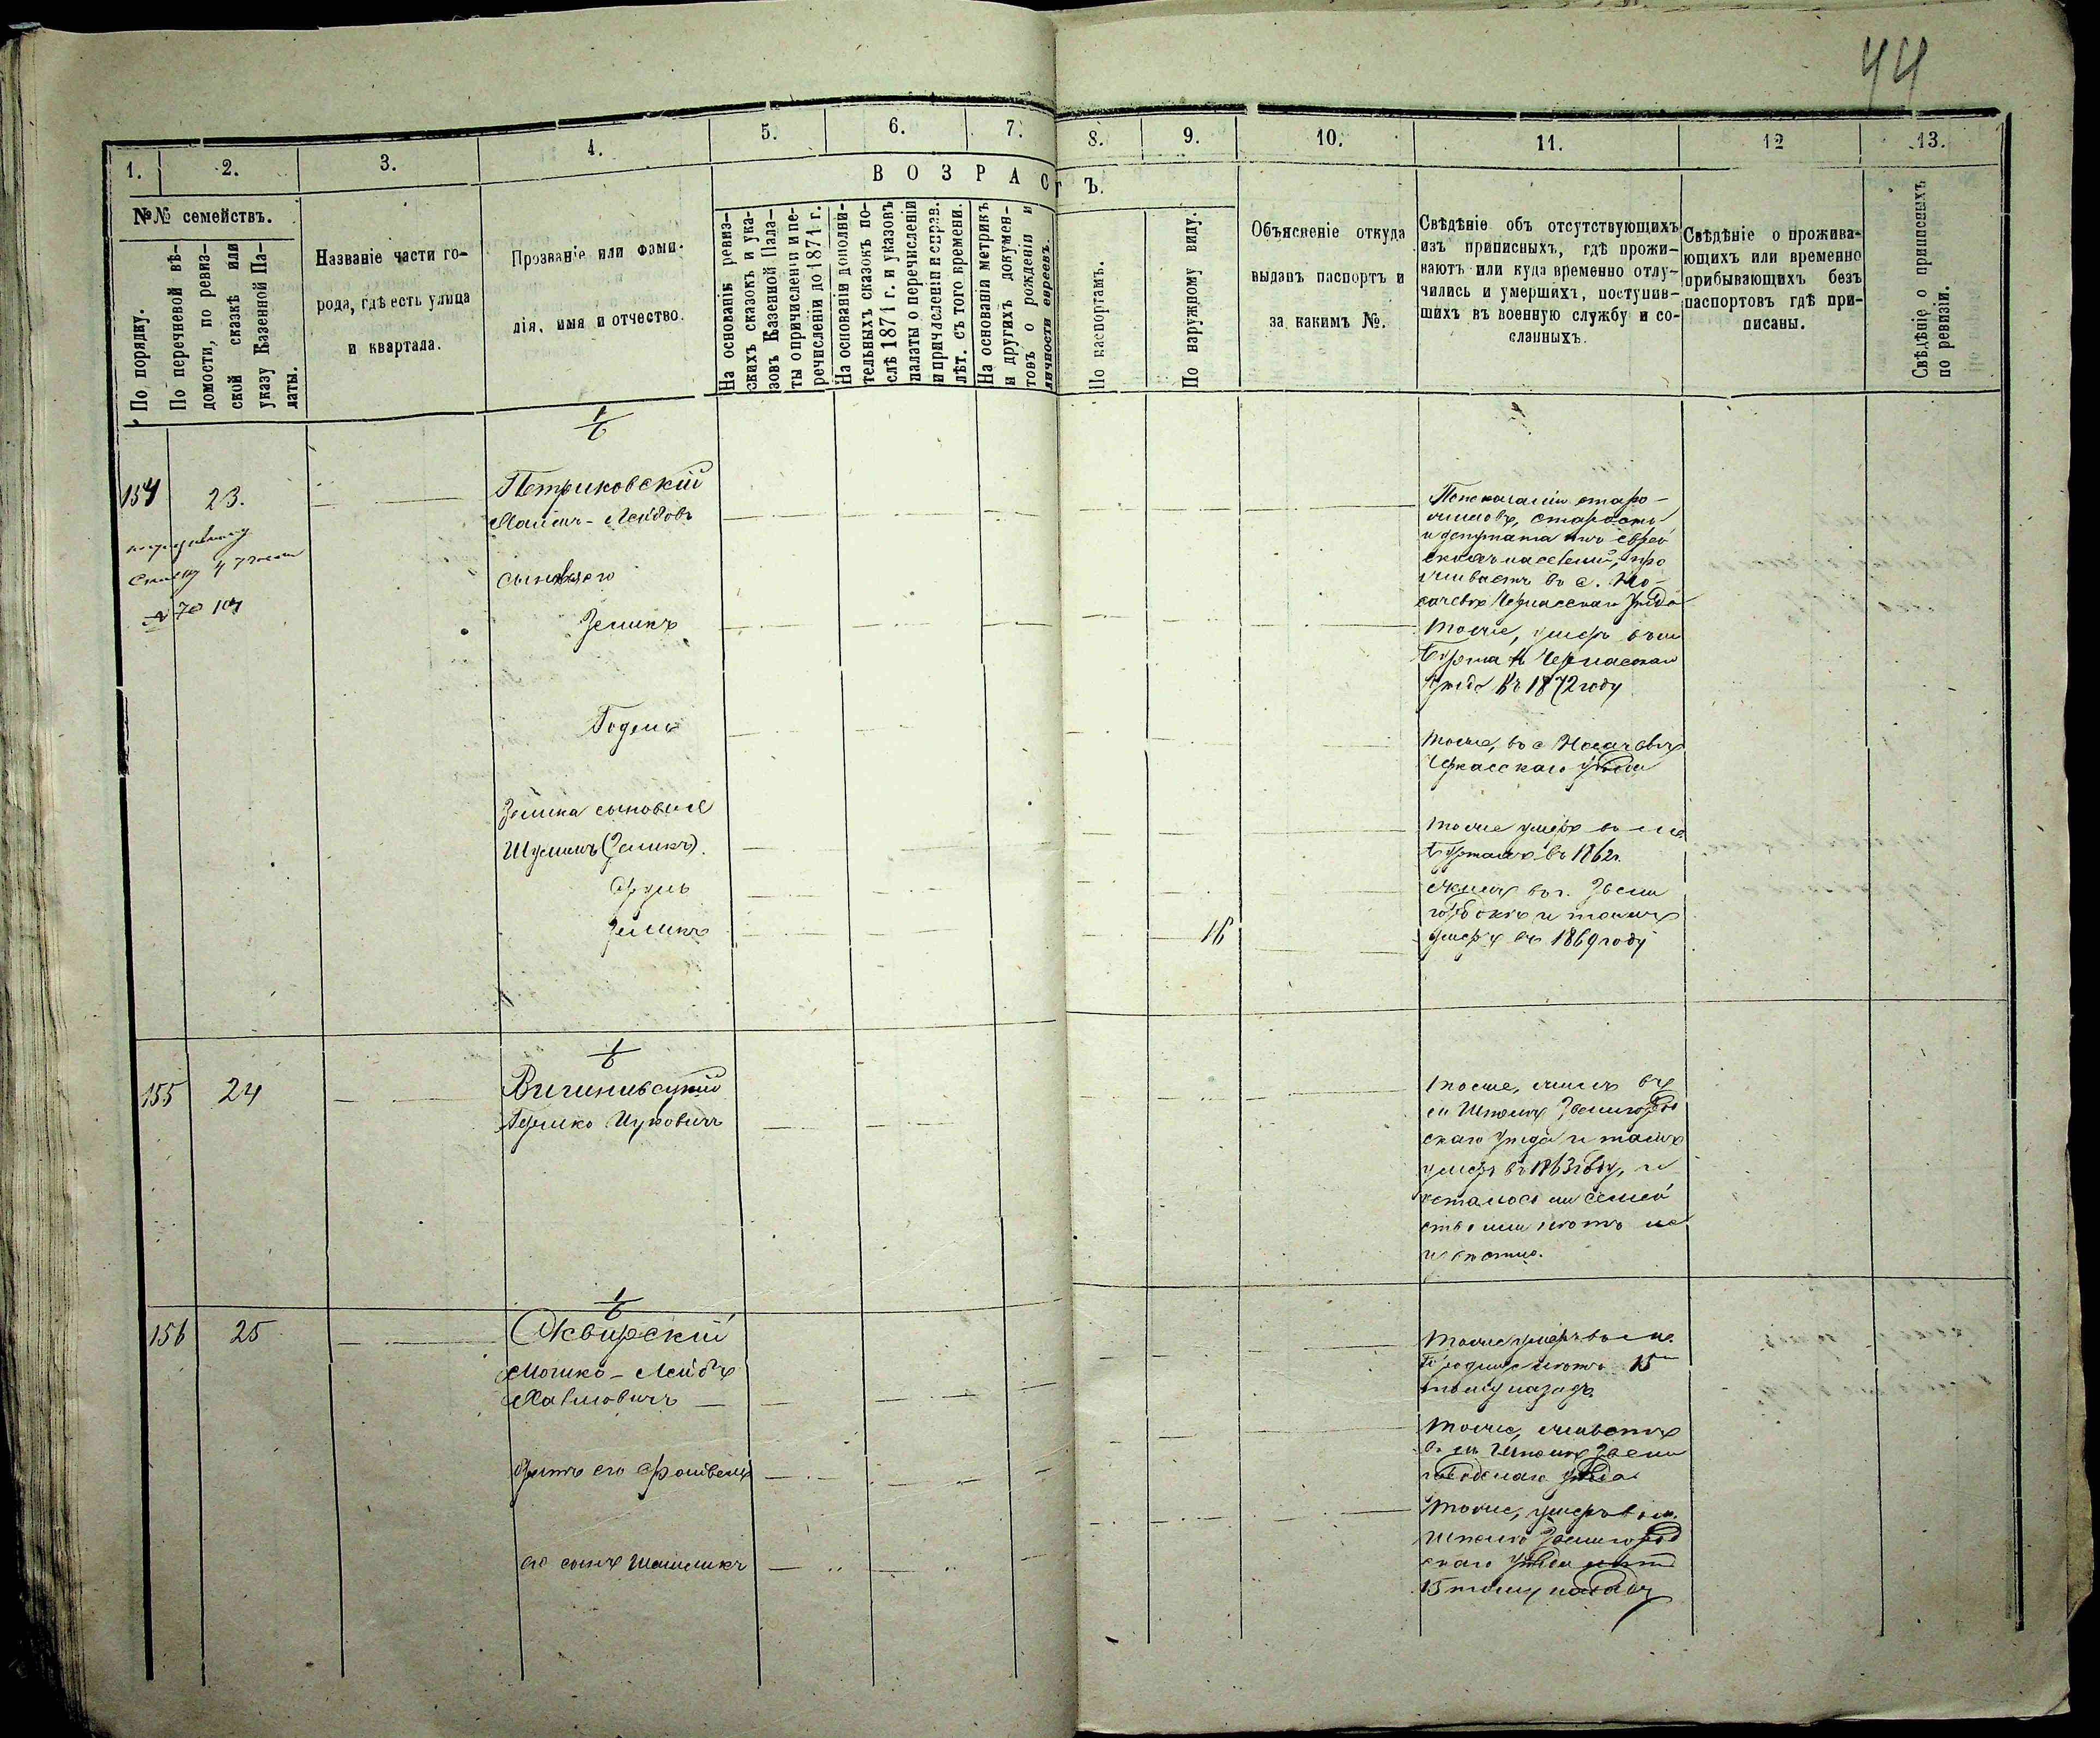 44
1.
2.
3.
4.
5.
6.
7.
8.
9.
10.
11.
12
13.
В О З Р А С Т Ъ.
№№ семействъ.
По порядку.
По перечневой вѣ-
домости, по ревиз-
ской сказкѣ или
указу Казенной Па-
латы.
Названіе части го-
рода, гдѣ есть улица
и квартала.
Прозваніе или фами-
лія, имя и отчество.
На основаніи ревиз-
скихъ сказокъ и ука-
зовъ Казенной Пала-
ты о причисленіи и пе-
речисленіи до 1871 г.
На основаніи дополни-
тельныхъ сказокъ по-
слѣ 1871 г. и указовъ
палаты о перечисленіи
и причисленіи и справ.
лѣт. съ того времени.
На основаніи метрикъ
и другихъ докумен-
товъ о рожденіи и
личности евреевъ.
По паспортамъ.
По наружному виду.
Объясненіе откуда
выданъ паспортъ и
за какимъ №.
Свѣдѣніе объ отсутствующихъ
изъ приписныхъ, гдѣ прожи-
ваютъ или куда временно отлу-
чились и умершихъ, поступив-
шихъ въ военную службу и со-
сланныхъ.
Свѣдѣніе о прожива-
ющихъ или временно
прибывающихъ безъ
паспортовъ гдѣ при-
писаны.
Свѣдѣніе о приписныхъ
по ревизіи.
1/6
154
23.
Петриковскій
Лейбовъ
сыновья его
Зеликъ
Годель
Зелика сыновья
Шулимъ (Зеликъ).
Сруль
Зеликъ
16
старо-
старосты
и депутата
про
живаетъ въ с. Но-
сачевѣ Черкасскаго уѣзда
тоже, умеръ въ м
Черкасскаго
уѣзда въ 1872 году
тоже, въ с Носачевѣ
Черкасскаго уѣзда
тоже умеръ въ м
въ 1862 г.
въ г. Звени
городкѣ и тамъ
умеръ въ 1869 году
1/6
155
24
Гершко Ицковичъ
тоже, жилъ въ
м Шполѣ Звенигород
скаго уѣзда и тамъ
умеръ въ 1863 году, и
осталось ли семей
ство или нѣтъ не
извѣстно.
1/6
156
25
Сквирскій
Мошко-Лейбъ
Хаимовичъ
братъ его
его сынъ
тоже умеръ въ м.
лѣтъ 15
тому назадъ
тоже, живетъ
въ м Шполѣ Звени
городскаго уѣзда
тоже, умеръ въ м.
Шполѣ Звенигород
скаго уѣзда лѣтъ
15 тому назадъ